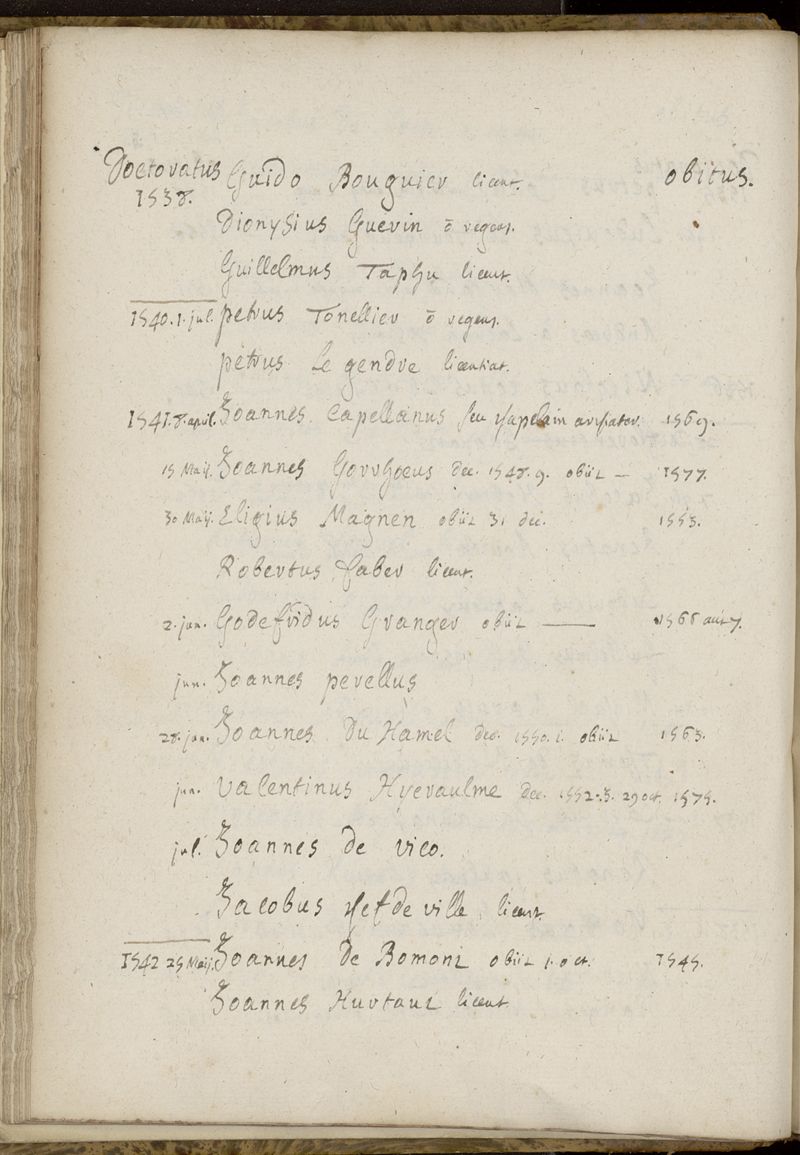 Doctoratus Guido Bouguier licent. obitus.
1538.
Dionysius Guerin ō regens.
Guillelmus Taphu licent.
1540. 1. jul. petrus Tonellier ō regens.
petrus Le gendre licentiat.
1541. 8. april. Joannes Capellanus seu chapelain archiater. 1569.
15 Maij. Joannes Gorrhoeus dec. 1548. 9. obiit — 1577.
30 Maij. Eligius Magnen obiit 31 dec. 1553.
Robertus faber licent.
2. jun. Godefridus Granger obiit — 1566 aut 7.
jun. Joannes perellus
28. jun. Joannes Du Hamel dec. 1550. 1. obiit 1563.
jun. Valentinus Hyeraulme dec. 1552. 3. 29 oct. 1575.
jul. Joannes de vico.
Jacobus chefdeville licent.
1542 25 Maij. Joannes De Bomont obiit 1. oct. 1545.
Joannes Hurtaut licent